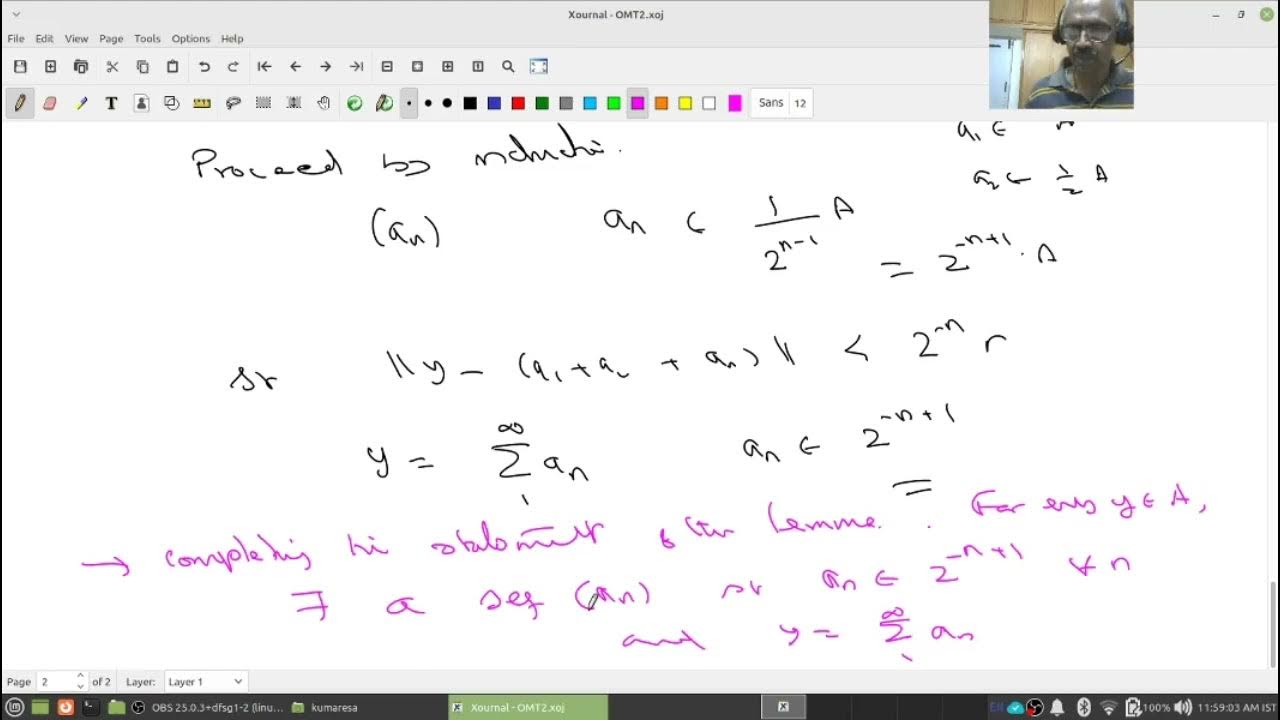 Xournal - OMT2.xoj
File Edit View Page Tools Options Help
T Sans 12
a₁ ∈
Proceed by a₂ ∈ 1/2 A
(aₙ) aₙ ∈ 1/2ⁿ⁻¹ A
= 2⁻ⁿ⁺¹ · A
st ||y - (a₁ + a₂ + aₙ)|| < 2⁻ⁿ r
y = ∞ Σ 1 aₙ aₙ ∈ 2⁻ⁿ⁺¹
→ completing statement of the Lemma. For every y ∈ A,
∃ a seq (aₙ) st aₙ ∈ 2⁻ⁿ⁺¹ ∀ n
and y = ∞ Σ 1 aₙ
Page 2 of 2 Layer: Layer 1
OBS 25.0.3+dfsg1-2 (linu... kumaresa Xournal - OMT2.xoj EN 100% 11:59:03 AM IST